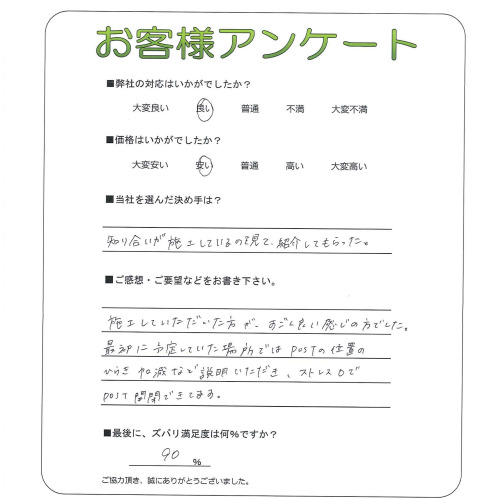 お客様アンケート
■弊社の対応はいかがでしたか？
大変良い 良い 普通 不満 大変不満
■価格はいかがでしたか？
大変安い 安い 普通 高い 大変高い
■当社を選んだ決め手は？
知り合いが施工しているのを見て、紹介してもらった。
■ご感想・ご要望などをお書き下さい。
施工していただいた方が、すごく良い感じの方でした。
最初に予定していた場所ではPOSTの位置の
ひらき加減など説明いただき、ストレス0で
POST開閉できてます。
■最後に、ズバリ満足度は何%ですか？
90 %
ご協力頂き、誠にありがとうございました。